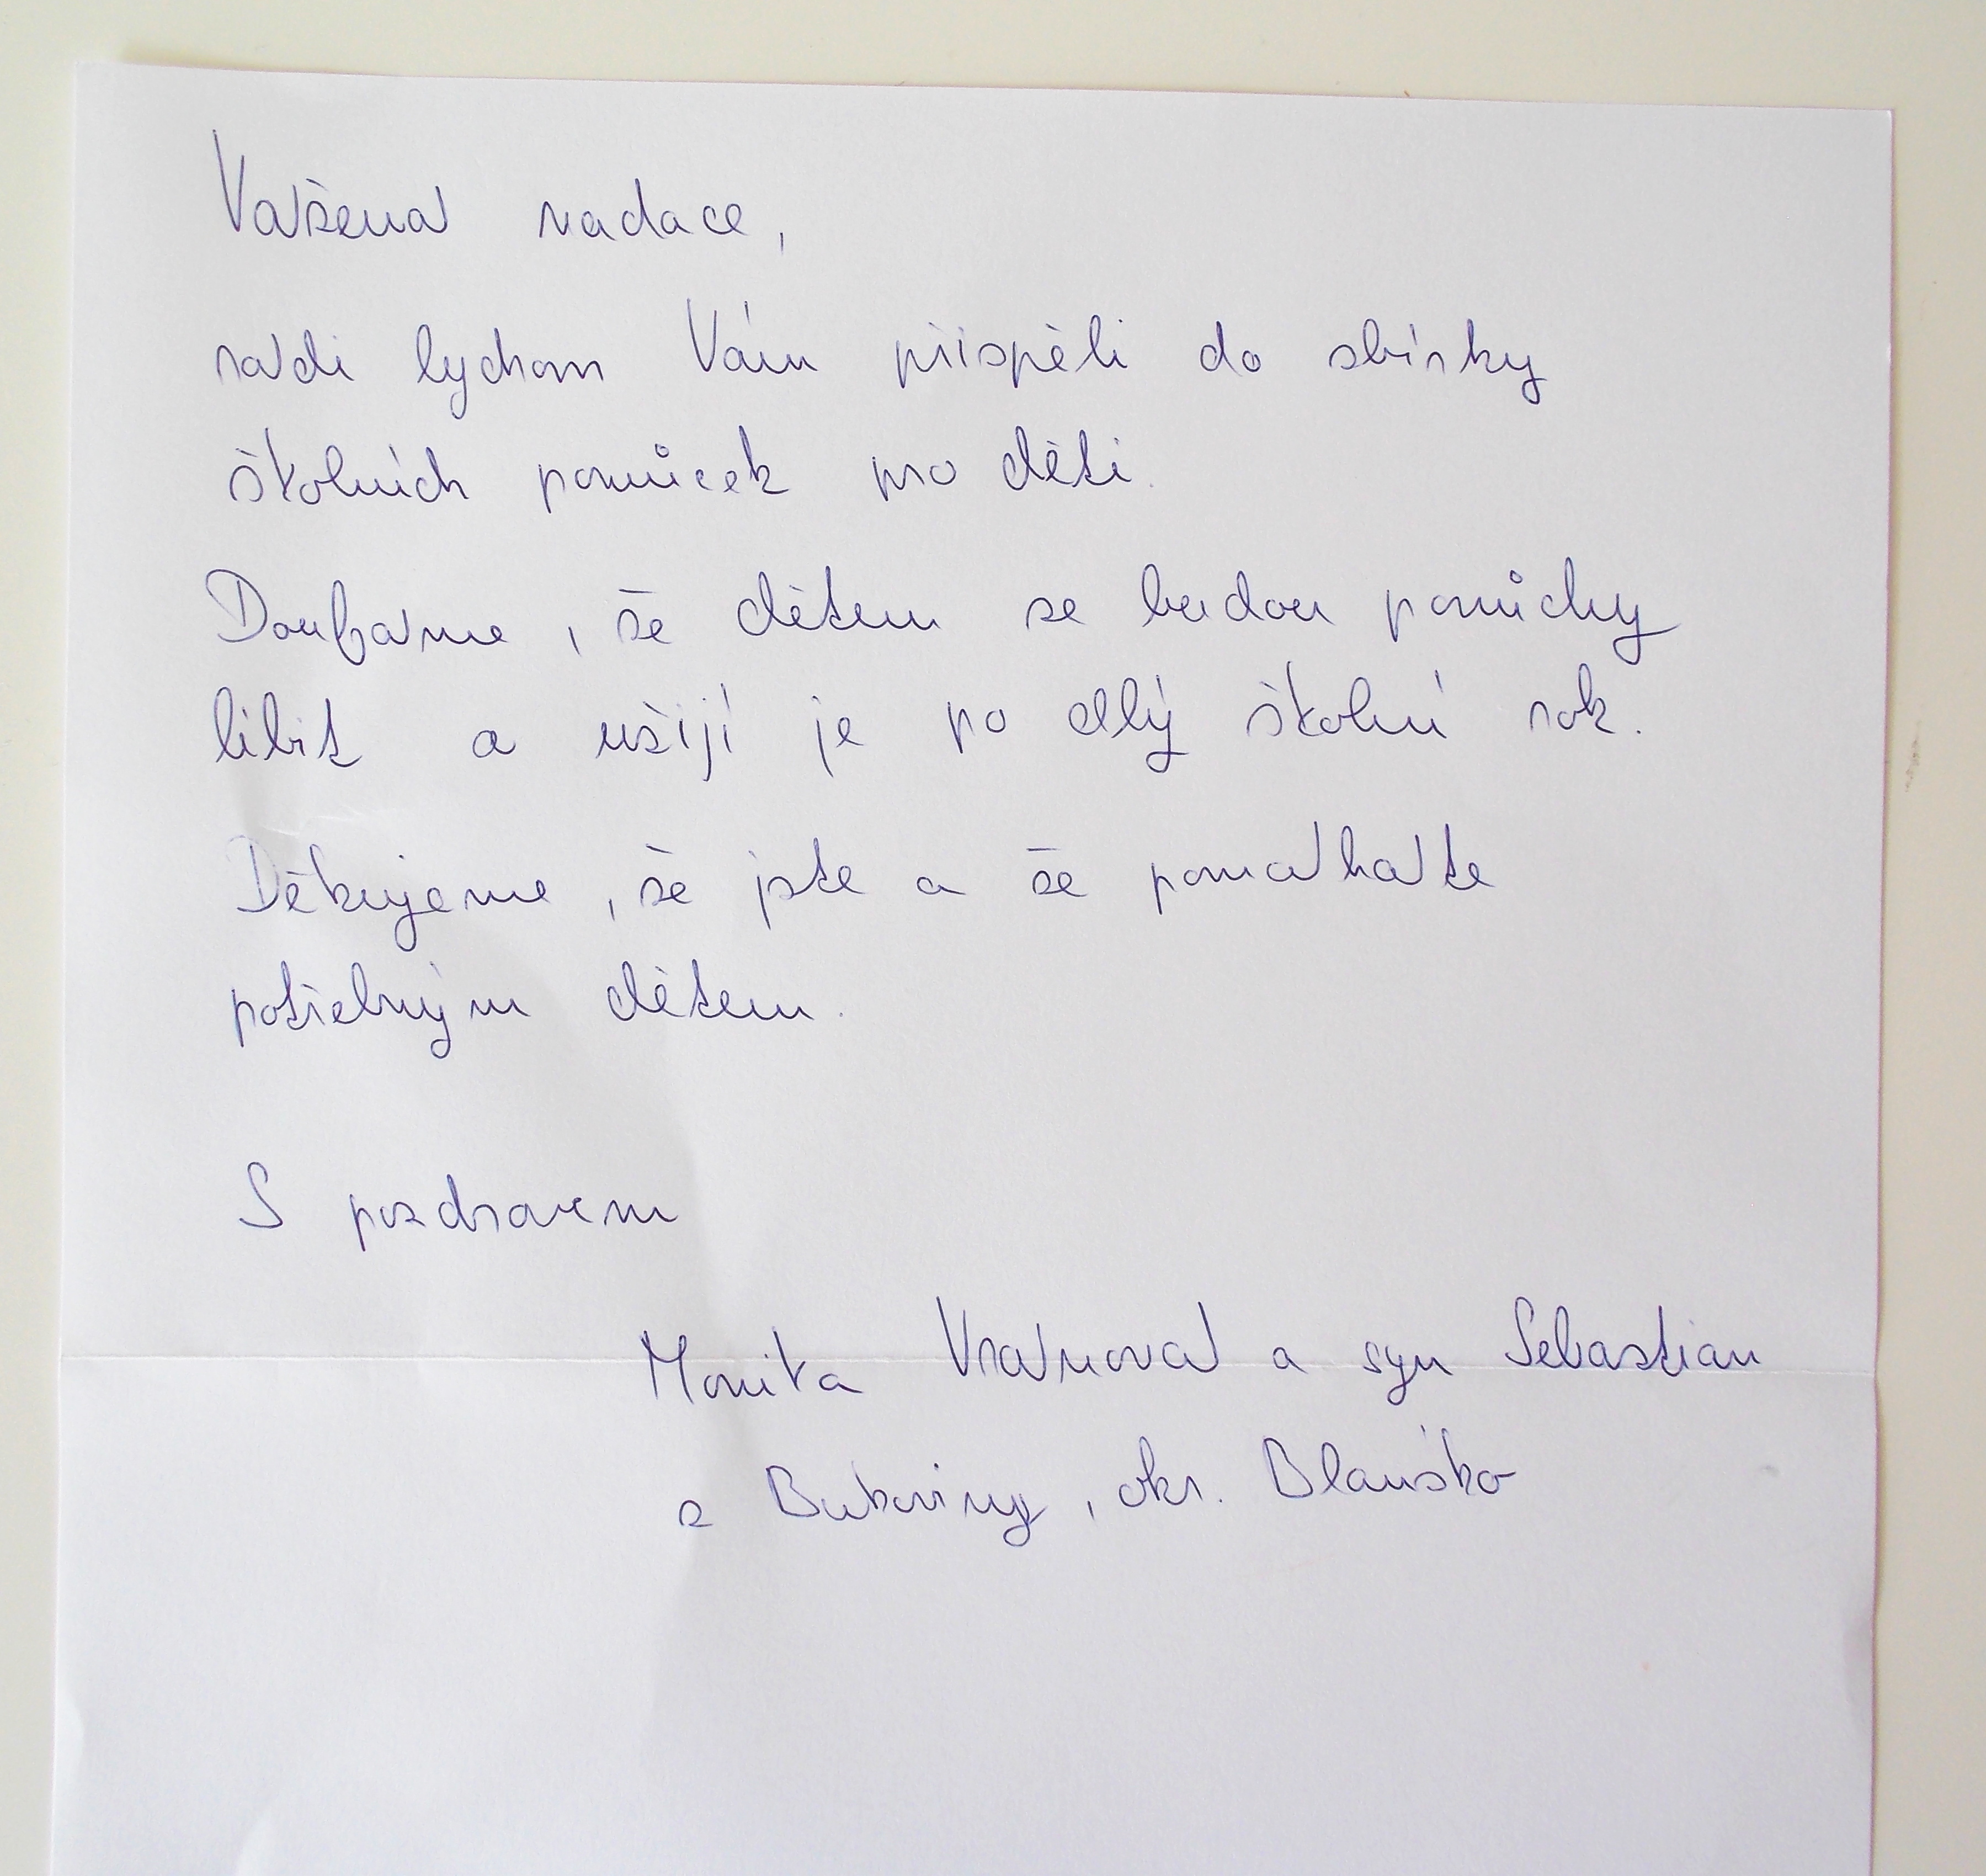 Vážená nadace,
rádi bychom Vám přispěli do sbírky
školních pomůcek pro děti.
Doufáme, že dětem se budou pomůcky
líbit a užijí je po celý školní rok.
Děkujeme, že jste a že pomáháte
potřebným dětem.
S pozdravem
Monika Vránová a syn Sebastian
z Bukoviny, okr. Blansko